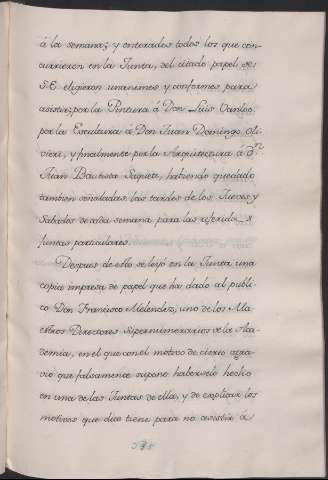 á la semana; y enterados todos los que con-
currieron en la Junta, del citado papel de
S.E. eligieron unanimes y conformes para
asistir, por la Pintura á Don Luis Vanloo,
por la Escultura á Don Juan Domingo Oli-
vieri, y finalmente por la Arquitectura á Dn.
Juan Bautista Saqueti, habiendo quedado
tambien señaladas las tardes de los Jueves y
Sabados de cada semana para las referidas
Juntas particulares.
Despues de esto se leyó en la Junta una
copia impresa de papel que ha dado al publi-
co Don Francisco Melendez, uno de los Ma-
estros Directores Supernumerarios de la Aca-
demia, en el que con el motivo de cierto agra-
vio que falsamente supone habersele hecho
en una de las Juntas de ella, y de explicar los
motivos que dice tiene para no asistir á